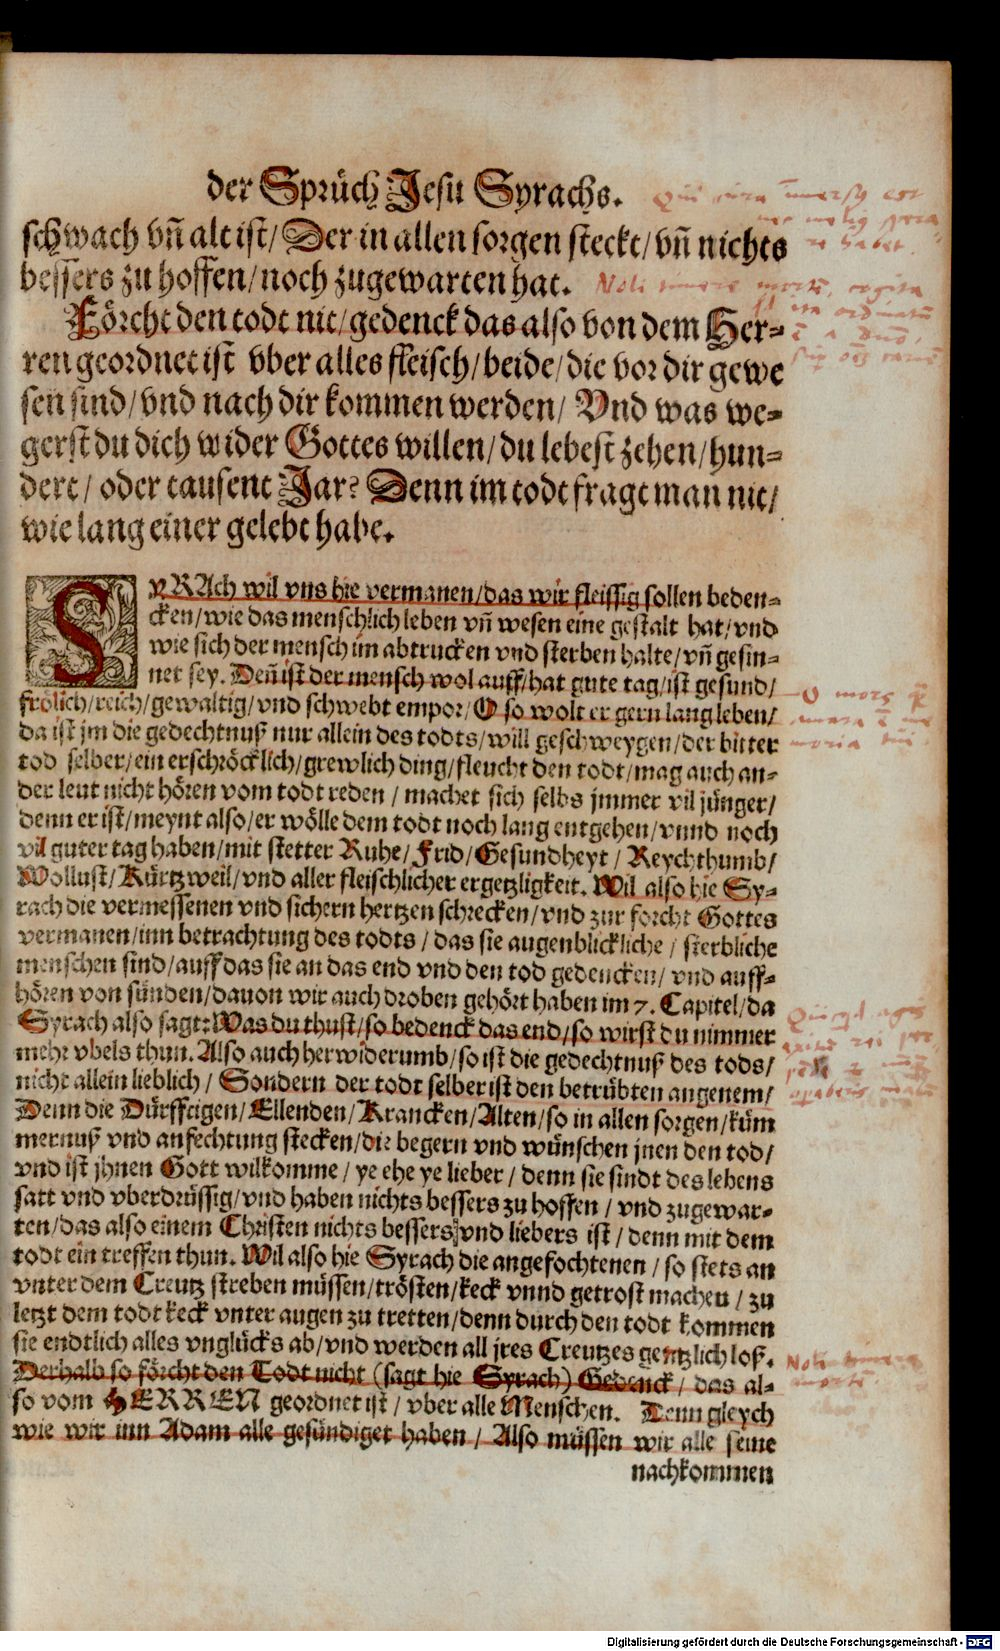 der Sprüch Jesu Syrachs.
schwach vñ alt ist/ Der in allen sorgen steckt/ vñ nichts
bessers zu hoffen/ noch zugewarten hat.
Förcht den todt nit/ gedenck das also von dem Her-
ren geordnet ist vber alles fleisch/ beide/ die vor dir gewe
sen sind/ vnd nach dir kommen werden/ Vnd was we-
gerst du dich wider Gottes willen/ du lebest zehen/ hun-
dert/ oder tausent Jar? Denn im todt fragt man nit/
wie lang einer gelebt habe.
SYRAch wil vns hie vermanen/ das wir fleissig sollen beden-
cken/ wie das menschlich leben vñ wesen eine gestalt hat/ vnd
wie sich der mensch im abtrucken vnd sterben halte/ vñ gesin-
net sey. Deñ ist der mensch wol auff/ hat gute tag/ ist gesund/
frölich/ reich/ gewaltig/ vnd schwebt empor/ O so wolt er gern lang leben/
da ist jm die gedechtnuß nur allein des todts/ will geschweygen/ der bitter
tod selber/ ein erschröcklich/ grewlich ding/ fleucht den todt/ mag auch an-
der leut nicht hören vom todt reden / machet sich selbs jmmer vil jünger/
denn er ist/ meynt also/ er wölle dem todt noch lang entgehen/ vnnd noch
vil guter tag haben/ mit stetter Ruhe/ Frid/ Gesundheyt / Reychthumb/
Wollust/ Kürtzweil/ vnd aller fleischlicher ergetzligkeit. Wil also hie Sy-
rach die vermessenen vnd sichern hertzen schrecken/ vnd zur forcht Gottes
vermanen/ inn betrachtung des todts / das sie augenblickliche / sterbliche
menschen sind/ auff das sie an das end vnd den tod gedencken/ vnd auff-
hören von sünden/ dauon wir auch droben gehört haben im 7. Capitel/ da
Syrach also sagt: Was du thust/ so bedenck das end/ so wirst du nimmer
mehr vbels thun. Also auch herwiderumb/ so ist die gedechtnuß des tods/
nicht allein lieblich / Sondern der todt selber ist den betrübten angenem/
Denn die Dürfftigen/ Ellenden/ Krancken/ Alten/ so in allen sorgen/ küm
mernuß vnd anfechtung stecken/ die begern vnd wünschen jnen den tod/
vnd ist jhnen Gott wilkomme / ye ehe ye lieber / denn sie sindt des lebens
satt vnd vberdrüssig/ vnd haben nichts bessers zu hoffen / vnd zugewar-
ten/ das also einem Christen nichts bessers vnd liebers ist / denn mit dem
todt ein treffen thun. Wil also hie Syrach die angefochtenen / so stets an
vnter dem Creutz streben müssen/ trösten/ keck vnnd getrost machen / zu
letzt dem todt keck vnter augen zu tretten/ denn durch den todt kommen
sie endtlich alles vnglücks ab/ vnd werden all jres Creutzes gentzlich loß.
Derhalb so förcht den Todt nicht (sagt hie Syrach) Gedenck / das al-
so vom HERREN geordnet ist / vber alle Menschen. Denn gleych
wie wir inn Adam alle gesündiget haben / Also müssen wir alle seine
nachkommen
Noli timere mortē, cogita
O mors
amara ē me
moria tui.
Noli timere
mortē.
Digitalisierung gefördert durch die Deutsche Forschungsgemeinschaft - DFG